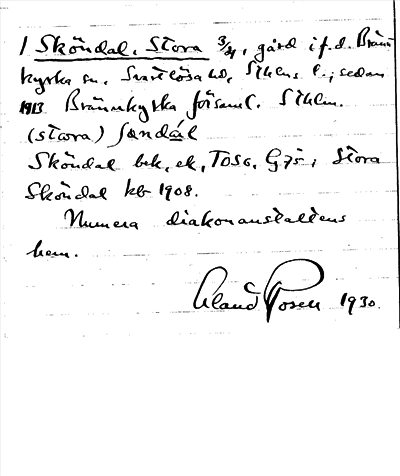 1 Sköndal, Stora 3/4, gård i f. d. Bränn
kyrka sn, Svartlösa hd, Sthlms l., sedan
1913 Brännkyrka församl. Sthlm.
(stωra) ʃœndál
Sköndal bek, ek, TOSG, G75, Stora
Sköndal kb 1908.
Numera diakonanstaltens
hem.
Eland Rosell 1930.